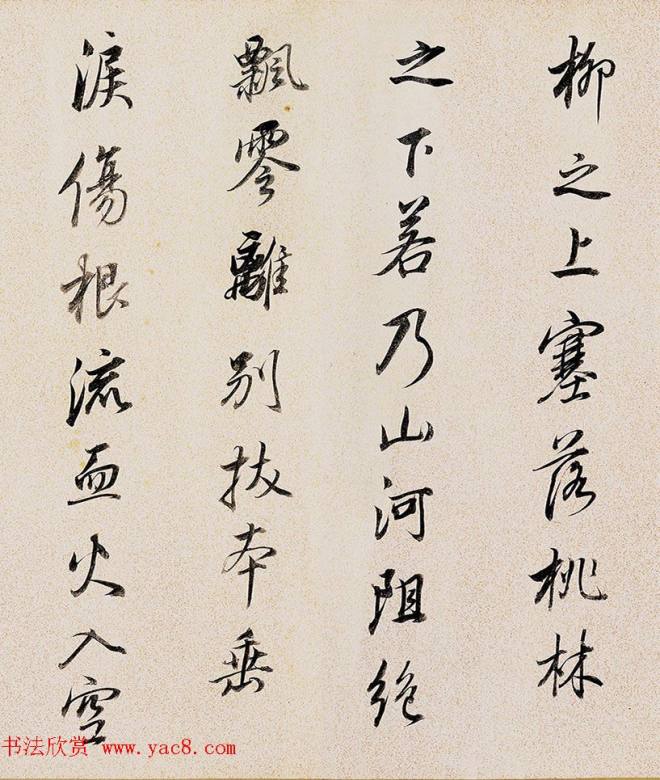 柳之上塞落桃林
之下若乃山河阻絶
飄零離别拔本垂
淚傷根流血火入空
书法欣赏 www.yac8.com